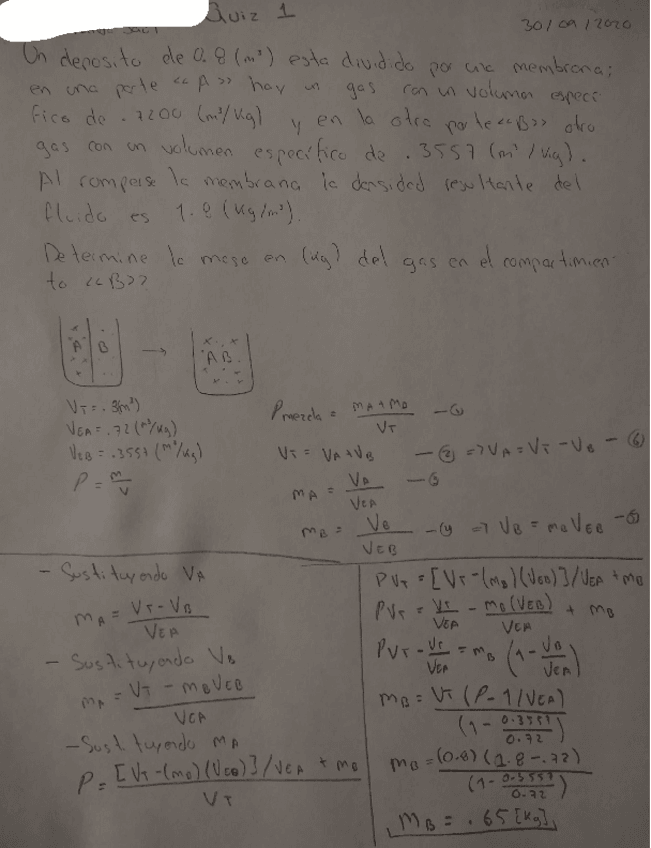 Quiz 1
30/09/2020
Un deposito de 0.8 (m³) esta dividido por una membrana;
en una parte <<A>> hay un gas con un volumen especi
fico de .7200 (m³/kg) y en la otra parte <<B>> otro
gas con un volumen especifico de .3557 (m³/kg).
Al romperse la membrana la densidad resultante del
fluido es 1.8 (kg/m³).
Determine la masa en (kg) del gas en el compartimien
to <<B>>
A B → AB
VT = .8(m³)
VEA = .72 (m³/kg)
VEB = .3557 (m³/kg)
P = m/V
Pmezcla = (mA + mB)/VT —①
VT = VA + VB —② => VA = VT - VB —⑥
mA = VA/VEA —③
mB = VB/VEB —④ => VB = mB VEB —⑤
- Sustituyendo VA
mA = (VT - VB)/VEA
- Sustituyendo VB
mA = (VT - mB VEB)/VEA
- Sustituyendo mA
P = ([VT - (mB)(VEB)]/VEA + mB)/VT
PVT = [VT - (mB)(VEB)]/VEA + mB
PVT = VT/VEA - mB(VEB)/VEA + mB
PVT - VT/VEA = mB (1 - VB/VEA)
mB = VT (P - 1/VEA)/(1 - 0.3557/0.72)
mB = (0.8)(1.8 - .72)/(1 - 0.3557/0.72)
mB = .65 [kg]